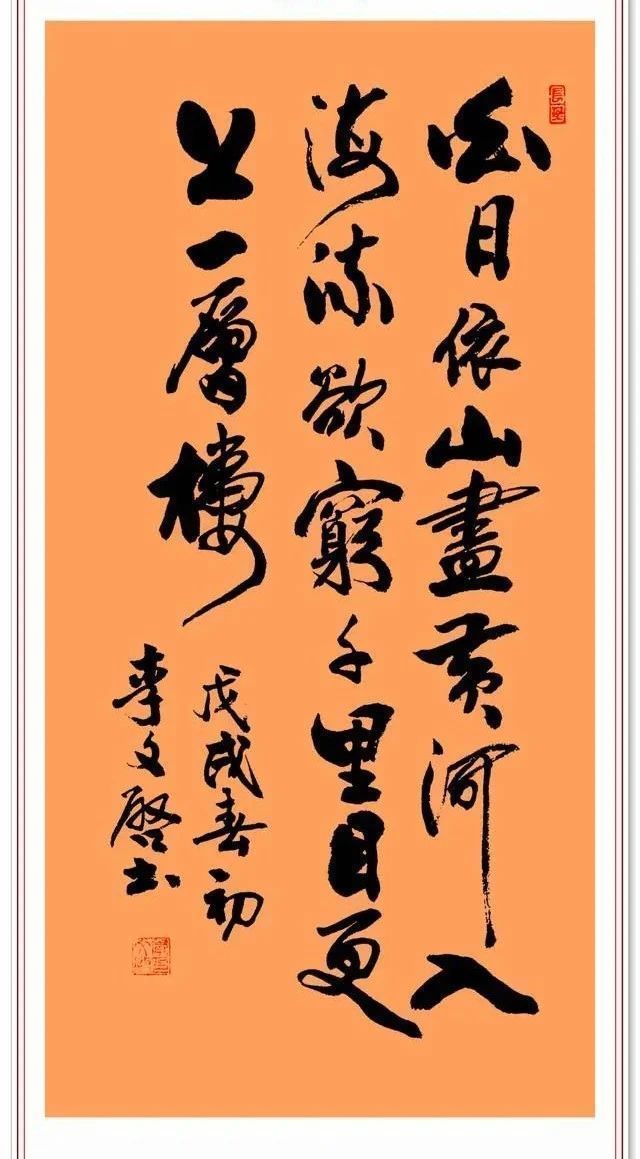 白日依山盡黃河入
海流欲窮千里目更
上一層樓
戊戌春初
李文啟书